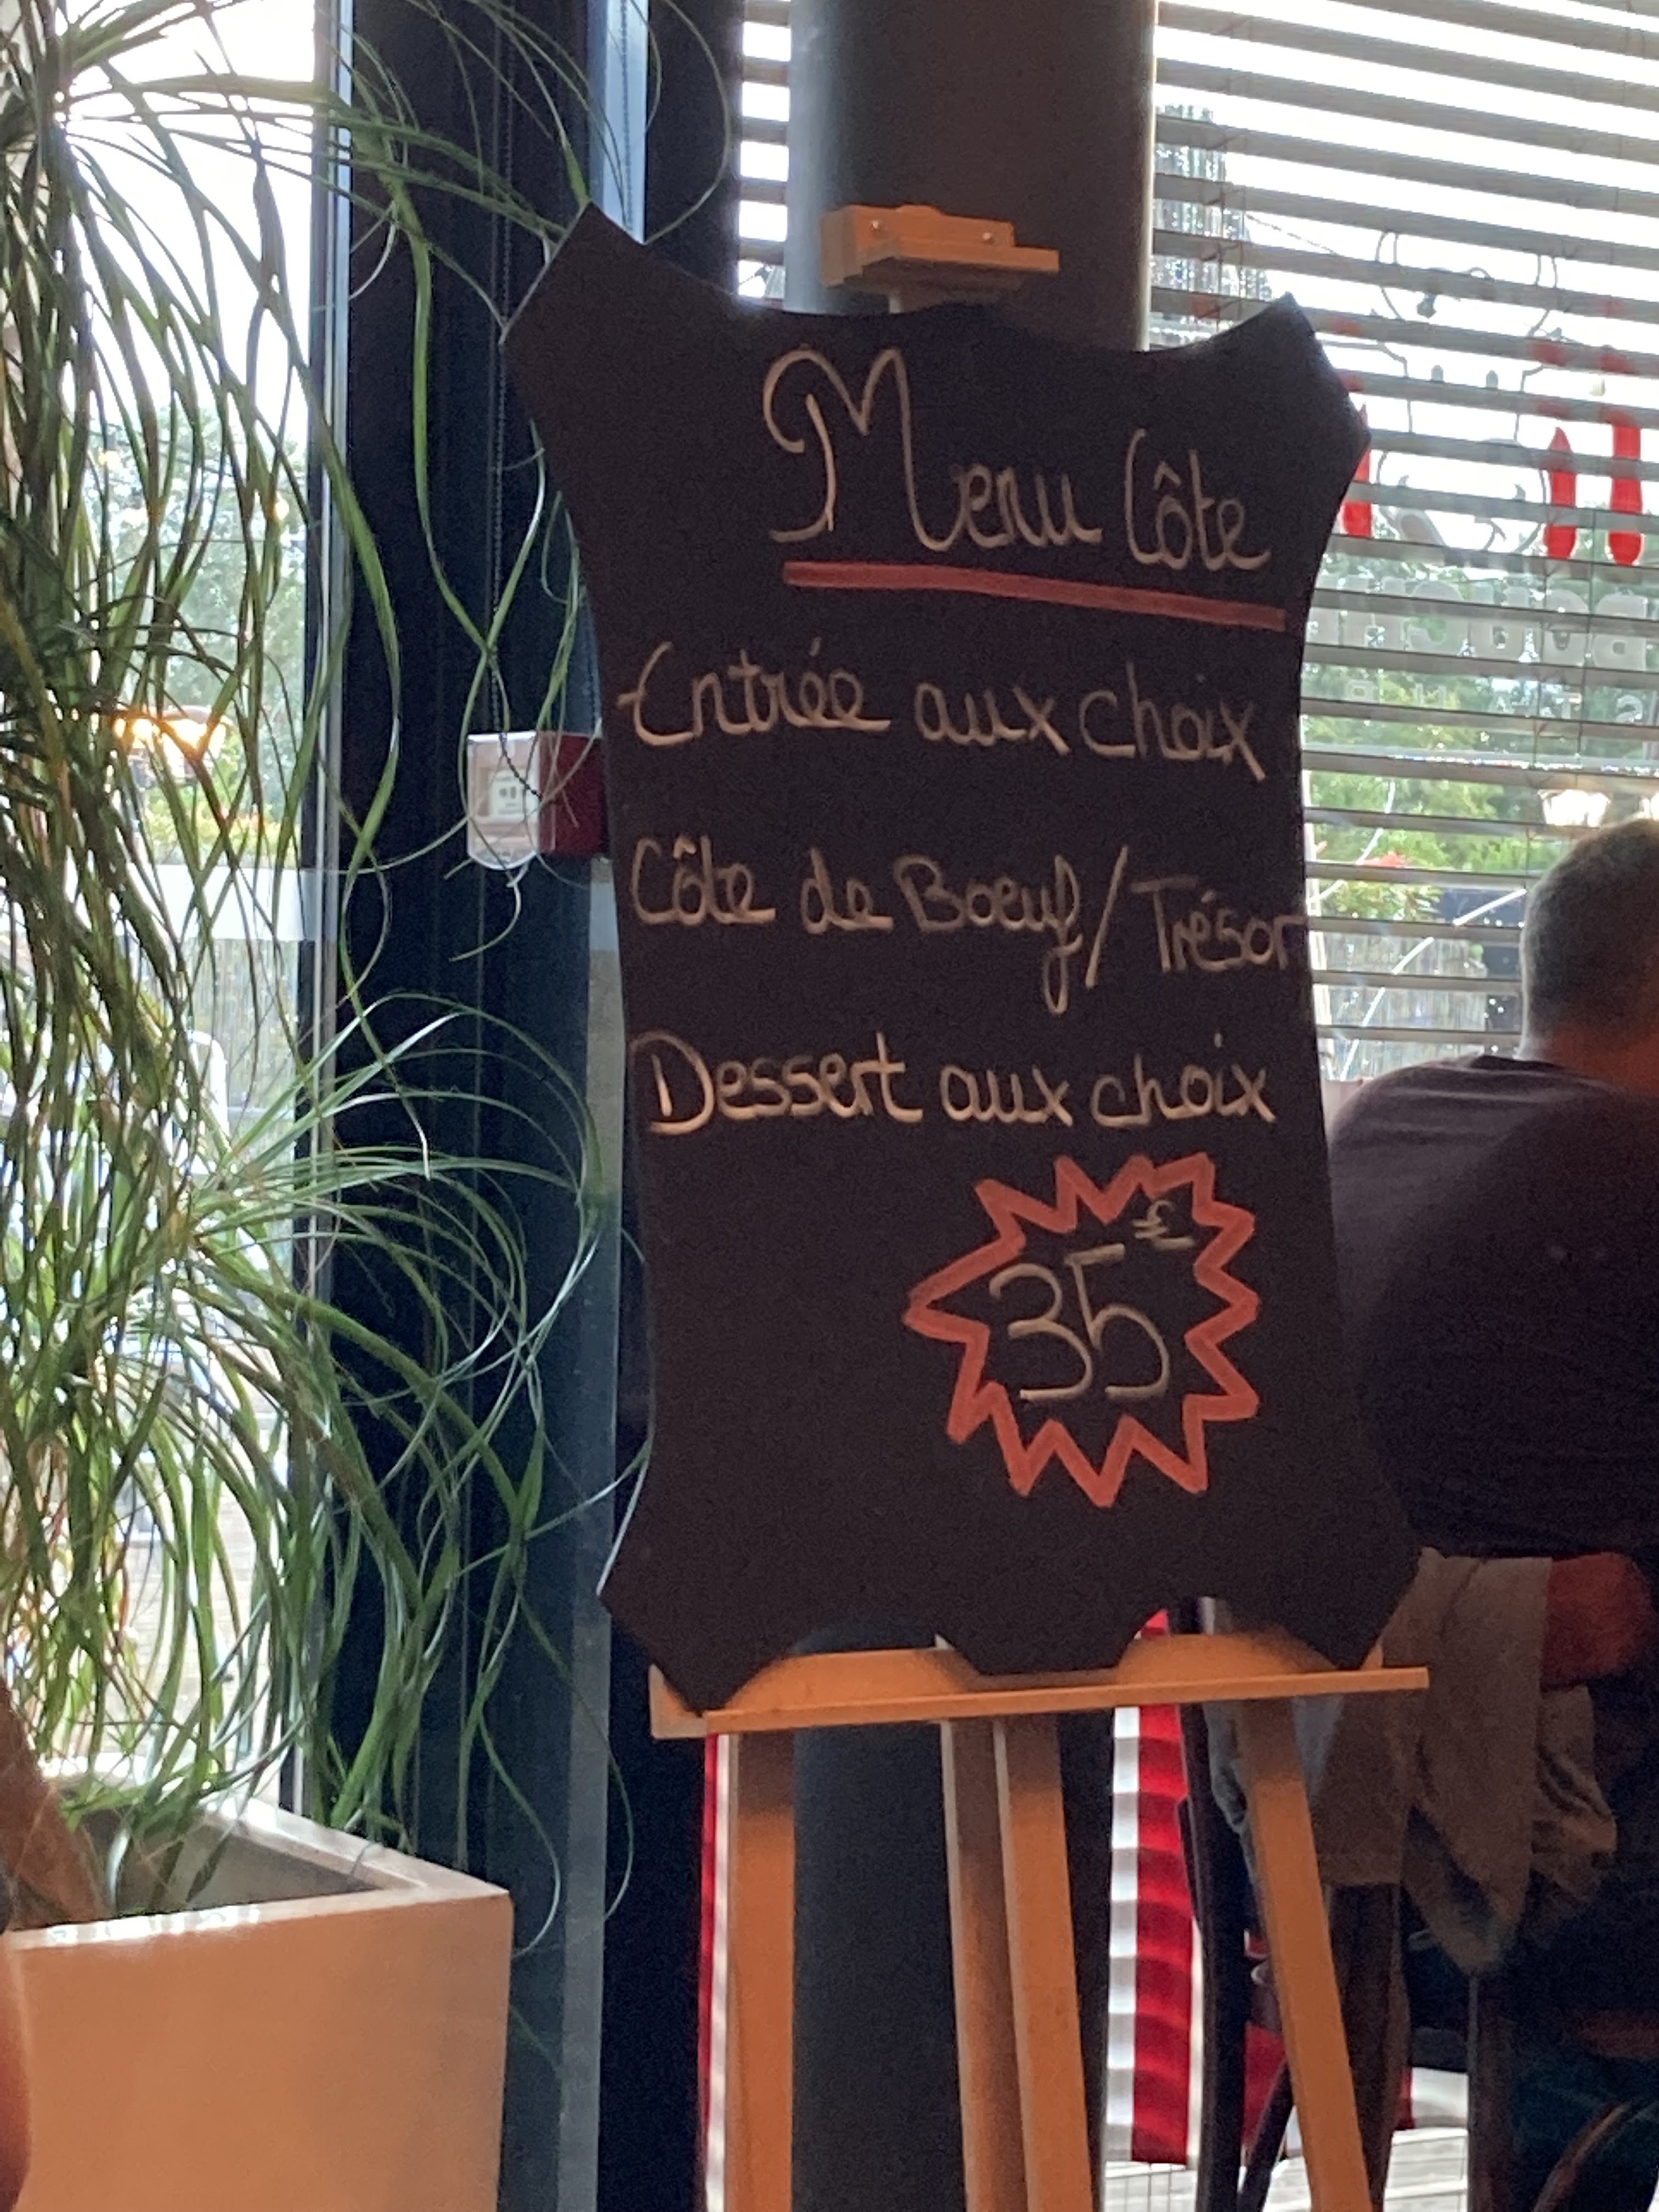 Menu Côte
Entrée aux choix
Côte de Boeuf / Trésor
Dessert aux choix
35€